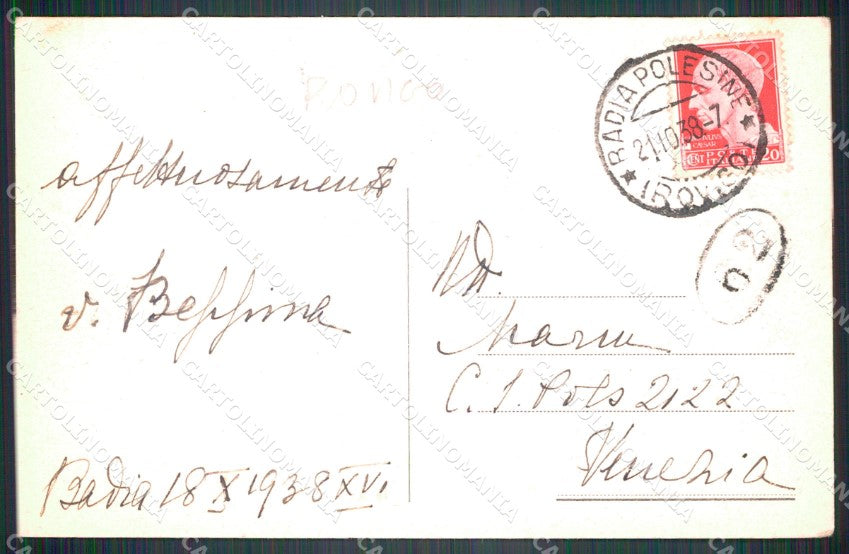 ROVIGO
affettuosamente
v. Beppina
Badia 18 X 1938 XVI
BADIA POLESINE
21.10.38-7
(ROVIGO)
CAESAR
CENT POSTE 20
N.D.
Marin
C. S. Polo 2122
Venezia
CARTOLINOMANIA